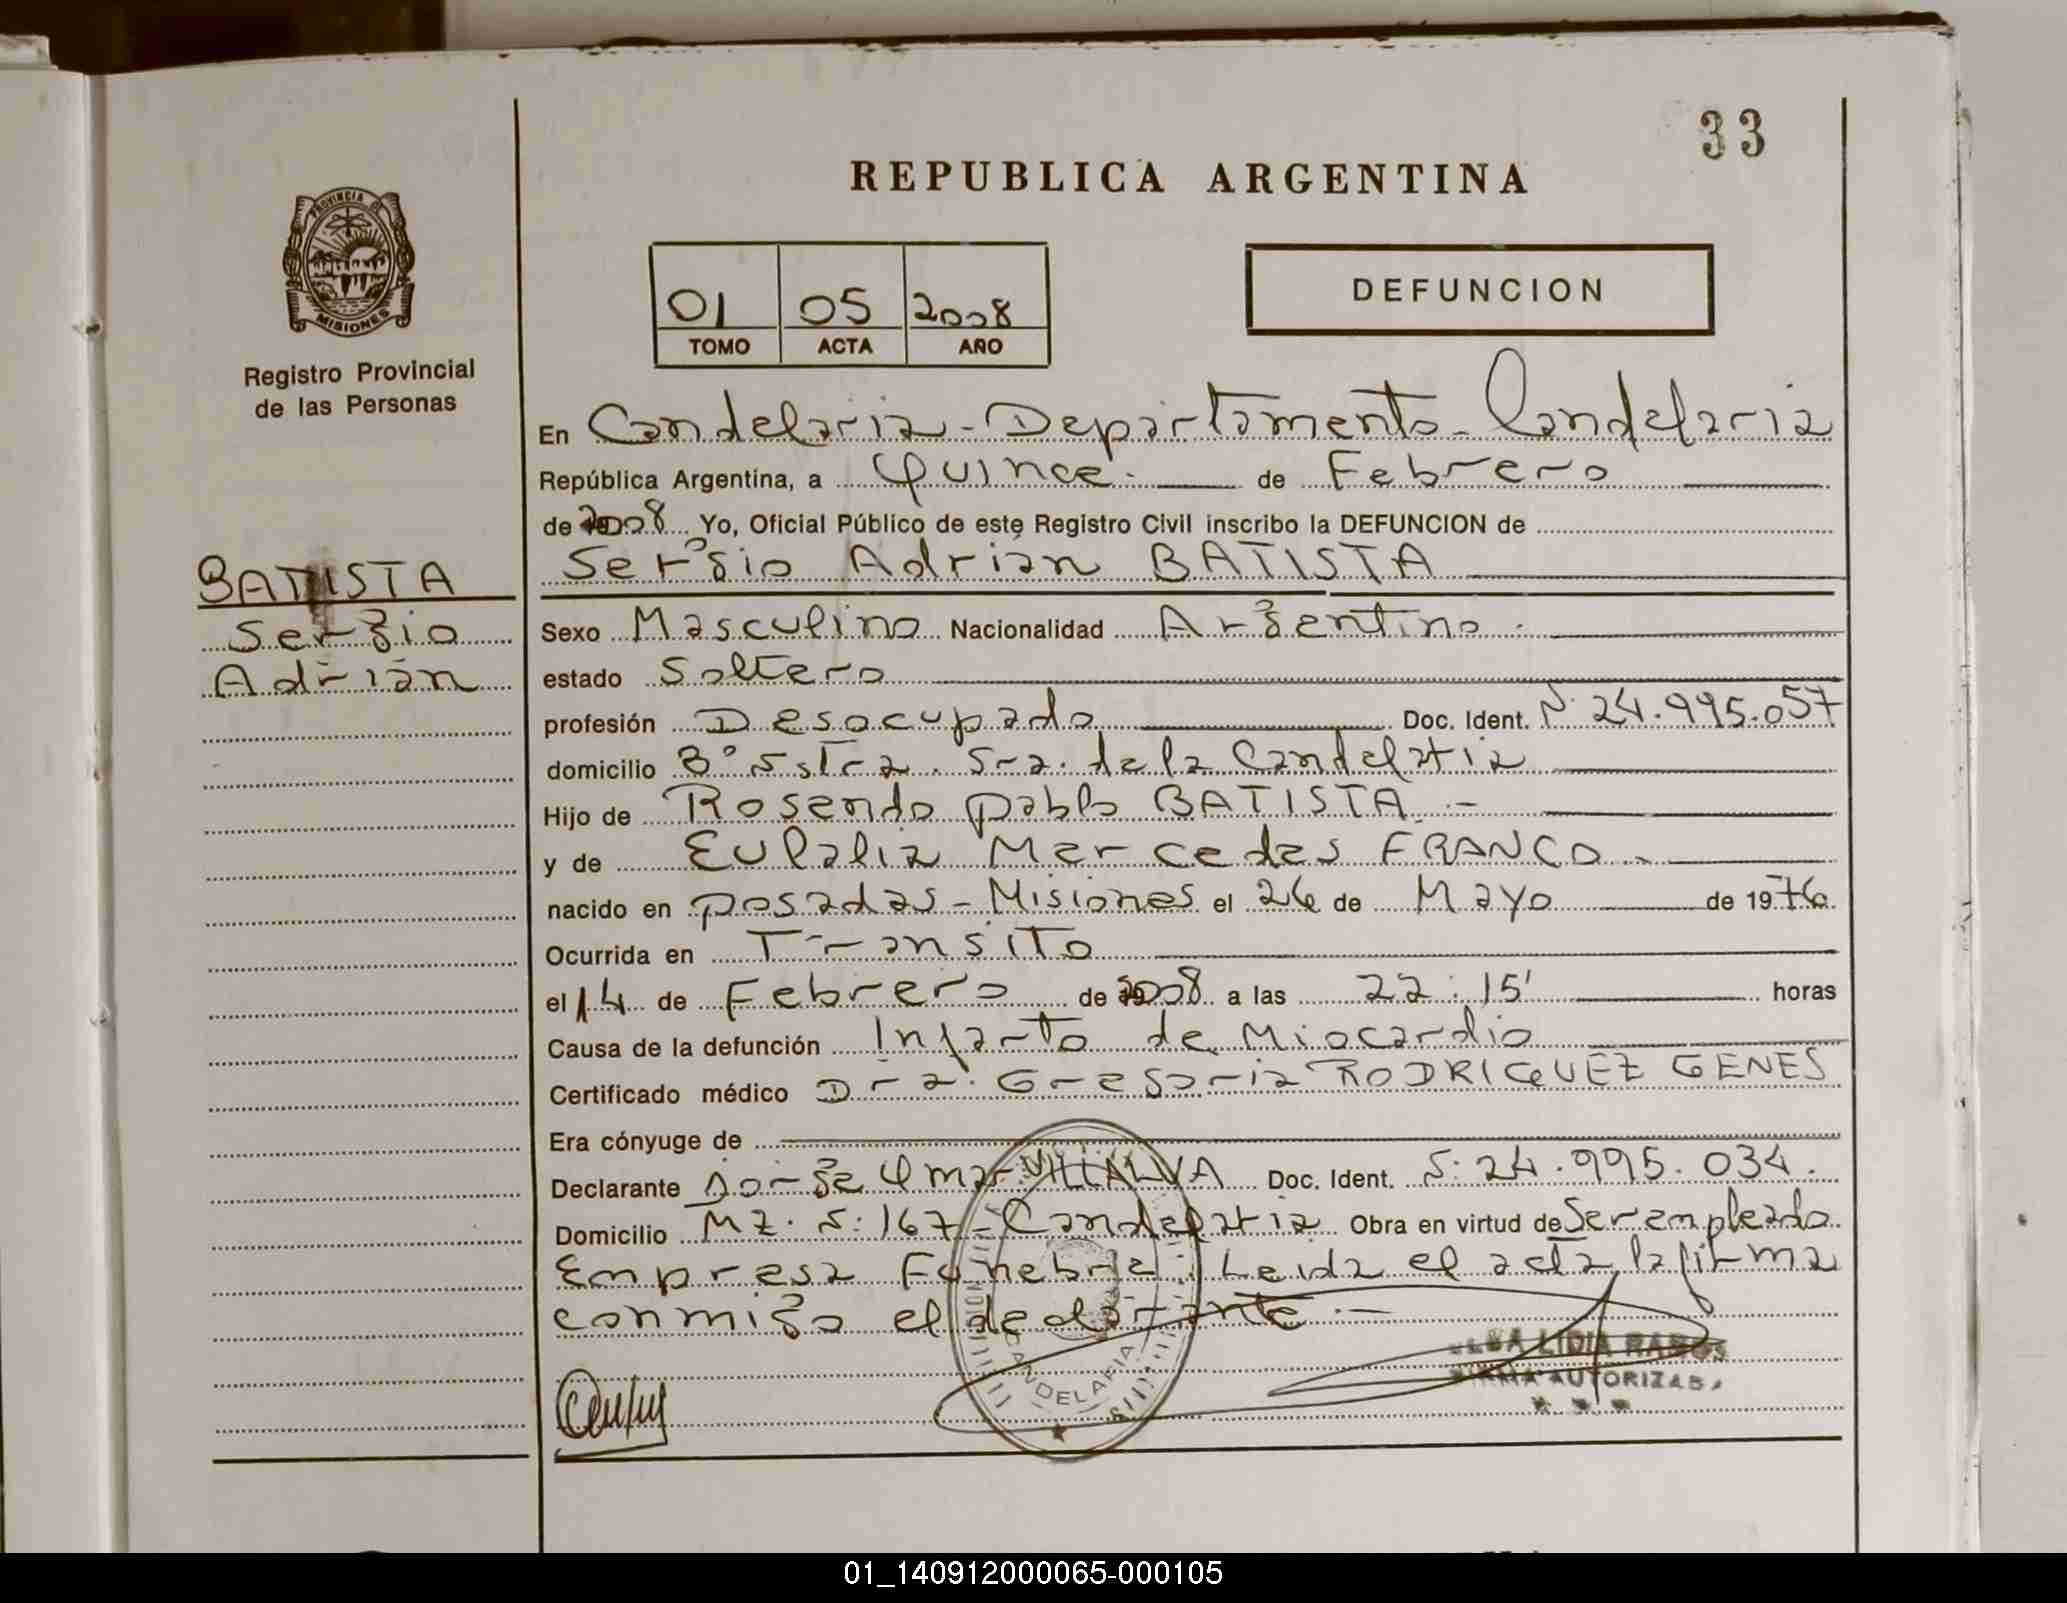 33
REPUBLICA ARGENTINA
PROVINCIA DE
MISIONES
Registro Provincial
de las Personas
01 05 2008
TOMO ACTA AÑO
DEFUNCION
En Candelaria - Departamento - Candelaria
República Argentina, a Quince.- de Febrero
de 2008 Yo, Oficial Público de este Registro Civil inscribo la DEFUNCION de
Sergio Adrián BATISTA
BATISTA
Sergio
Adrián
Sexo Masculino Nacionalidad Argentino.
estado Soltero
profesión Desocupado Doc. Ident. Nº 24.995.057
domicilio Bº Ntra. Sra. de la Candelaria
Hijo de Rosendo Pablo BATISTA.-
y de Eulalia Mercedes FRANCO.
nacido en Posadas - Misiones el 26 de Mayo de 1976.
Ocurrida en Transito
el 14 de Febrero de 2008 a las 22:15' horas
Causa de la defunción Infarto de Miocardio
Certificado médico Dra. Gregoria RODRIGUEZ GENES
Era cónyuge de
Declarante Jorge Omar VILLALVA Doc. Ident. Nº 24.995.034.
Domicilio Mz. Nº 167 - Candelaria Obra en virtud de Ser empleado
Empresa Funebre. Leida el acta la firma
conmigo el declarante.-
LIDIA RAMOS
FIRMA AUTORIZADA
CANDELARIA
01_140912000065-000105